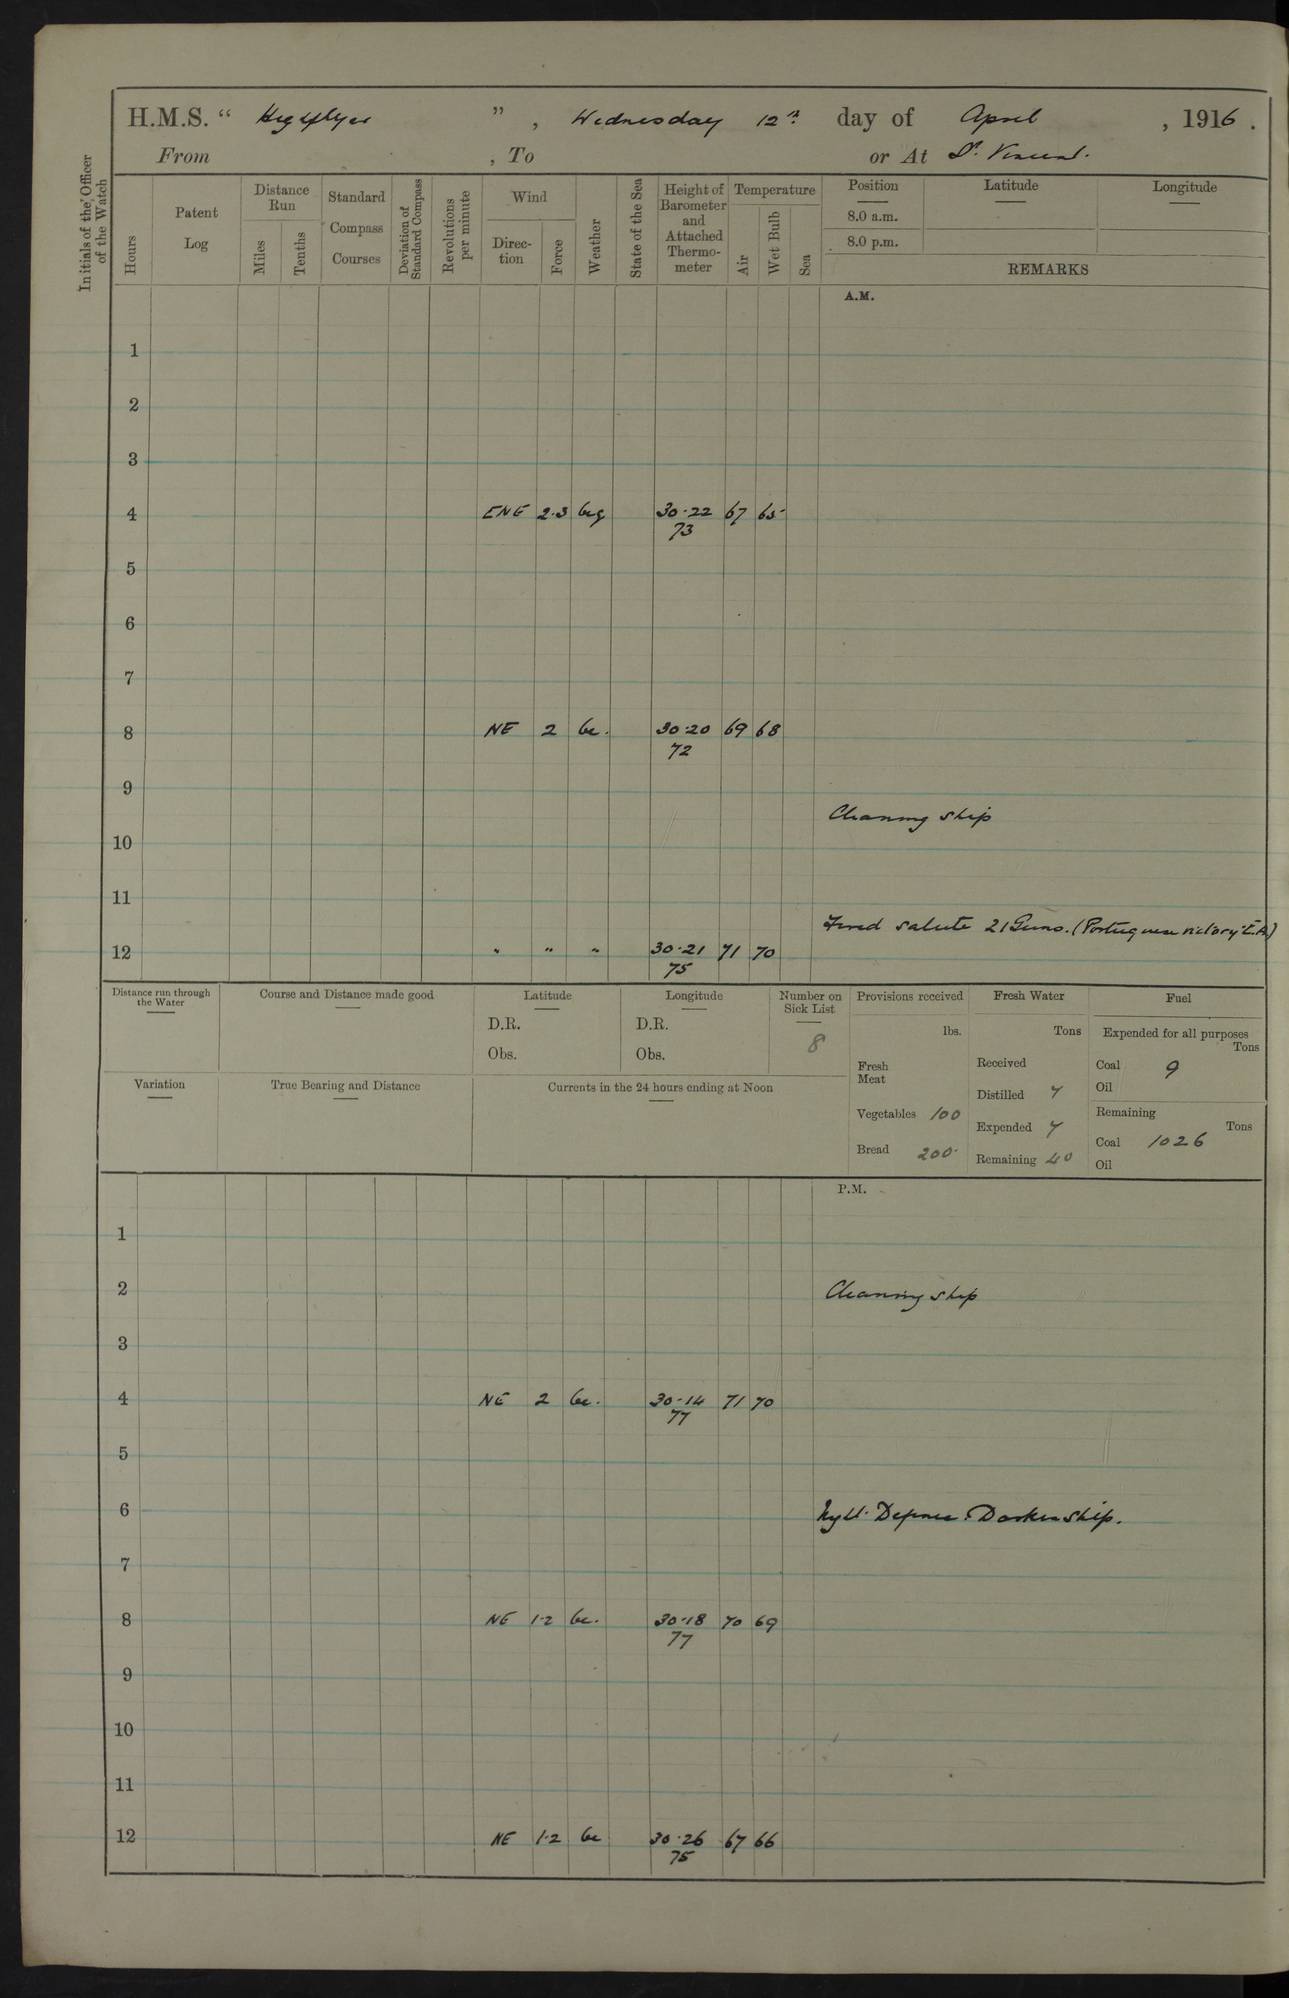 H.M.S. “ Highflyer ” , Wednesday 12th day of April , 1916 .
From , To or At St. Vincent.
Initials of the Officer of the Watch
Hours
Patent Log
Distance Run
Miles
Tenths
Standard Compass Courses
Deviation of Standard Compass
Revolutions per minute
Wind
Direction
Force
Weather
State of the Sea
Height of Barometer and Attached Thermometer
Temperature
Air
Wet Bulb
Sea
Position Latitude Longitude
8.0 a.m.
8.0 p.m.
REMARKS
A.M.
1
2
3
4 ENE 2.3 bcg 30.22 67 65
73
5
6
7
8 NE 2 bc. 30.20 69 68
72
9
Cleaning ship
10
11
Fired salute 21 Guns. (Portuguese victory E.A.)
12 " " " 30.21 71 70
75
Distance run through the Water
Course and Distance made good
Latitude
D.R.
Obs.
Longitude
D.R.
Obs.
Number on Sick List
8
Provisions received
lbs.
Fresh Meat
Vegetables 100
Bread 200
Fresh Water
Tons
Received
Distilled 7
Expended 7
Remaining 40
Fuel
Expended for all purposes
Tons
Coal 9
Oil
Remaining
Tons
Coal 1026
Oil
Variation
True Bearing and Distance
Currents in the 24 hours ending at Noon
P.M.
1
2 Cleaning ship
3
4 NE 2 bc. 30.14 71 70
77
5
6 Night Defence. Darken ship.
7
8 NE 1.2 bc. 30.18 70 69
77
9
10
11
12 NE 1.2 bc 30.26 67 66
75